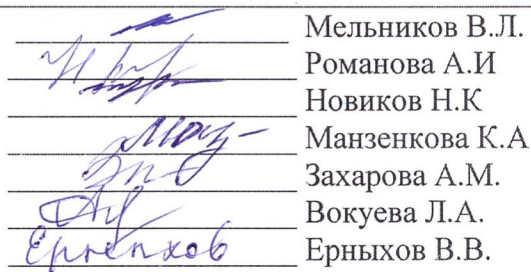 Мельников В.Л.
Романова А.И
Новиков Н.К
Манзенкова К.А
Захарова А.М.
Вокуева Л.А.
Ерныхов Ерныхов В.В.